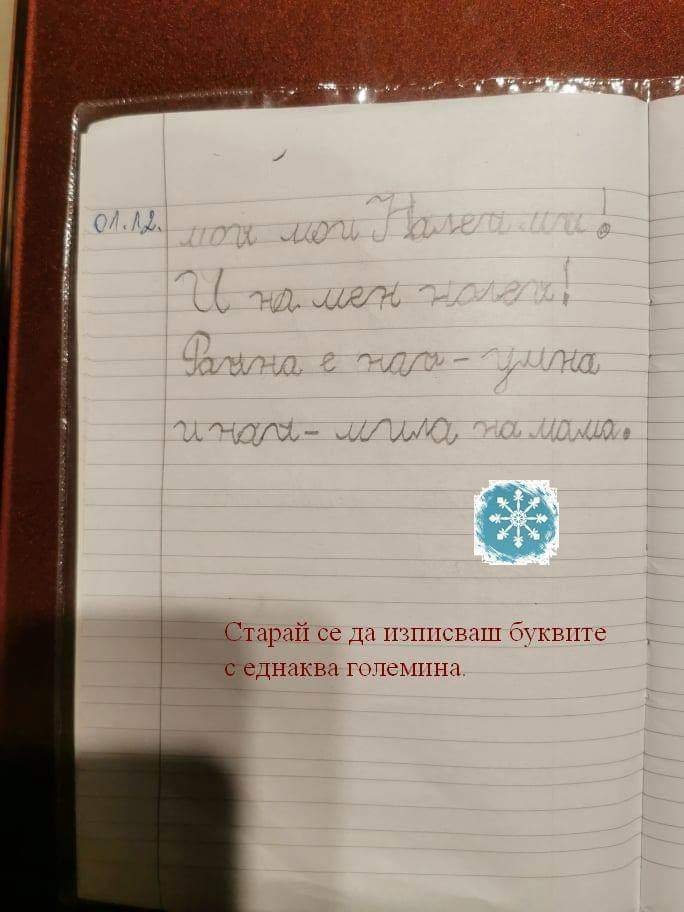 01.12.
мои мои Налеи ми!
И на мен налеи!
Раина е наи - умна
и наи - мила на мама.
Старай се да изписваш буквите
с еднаква големина.